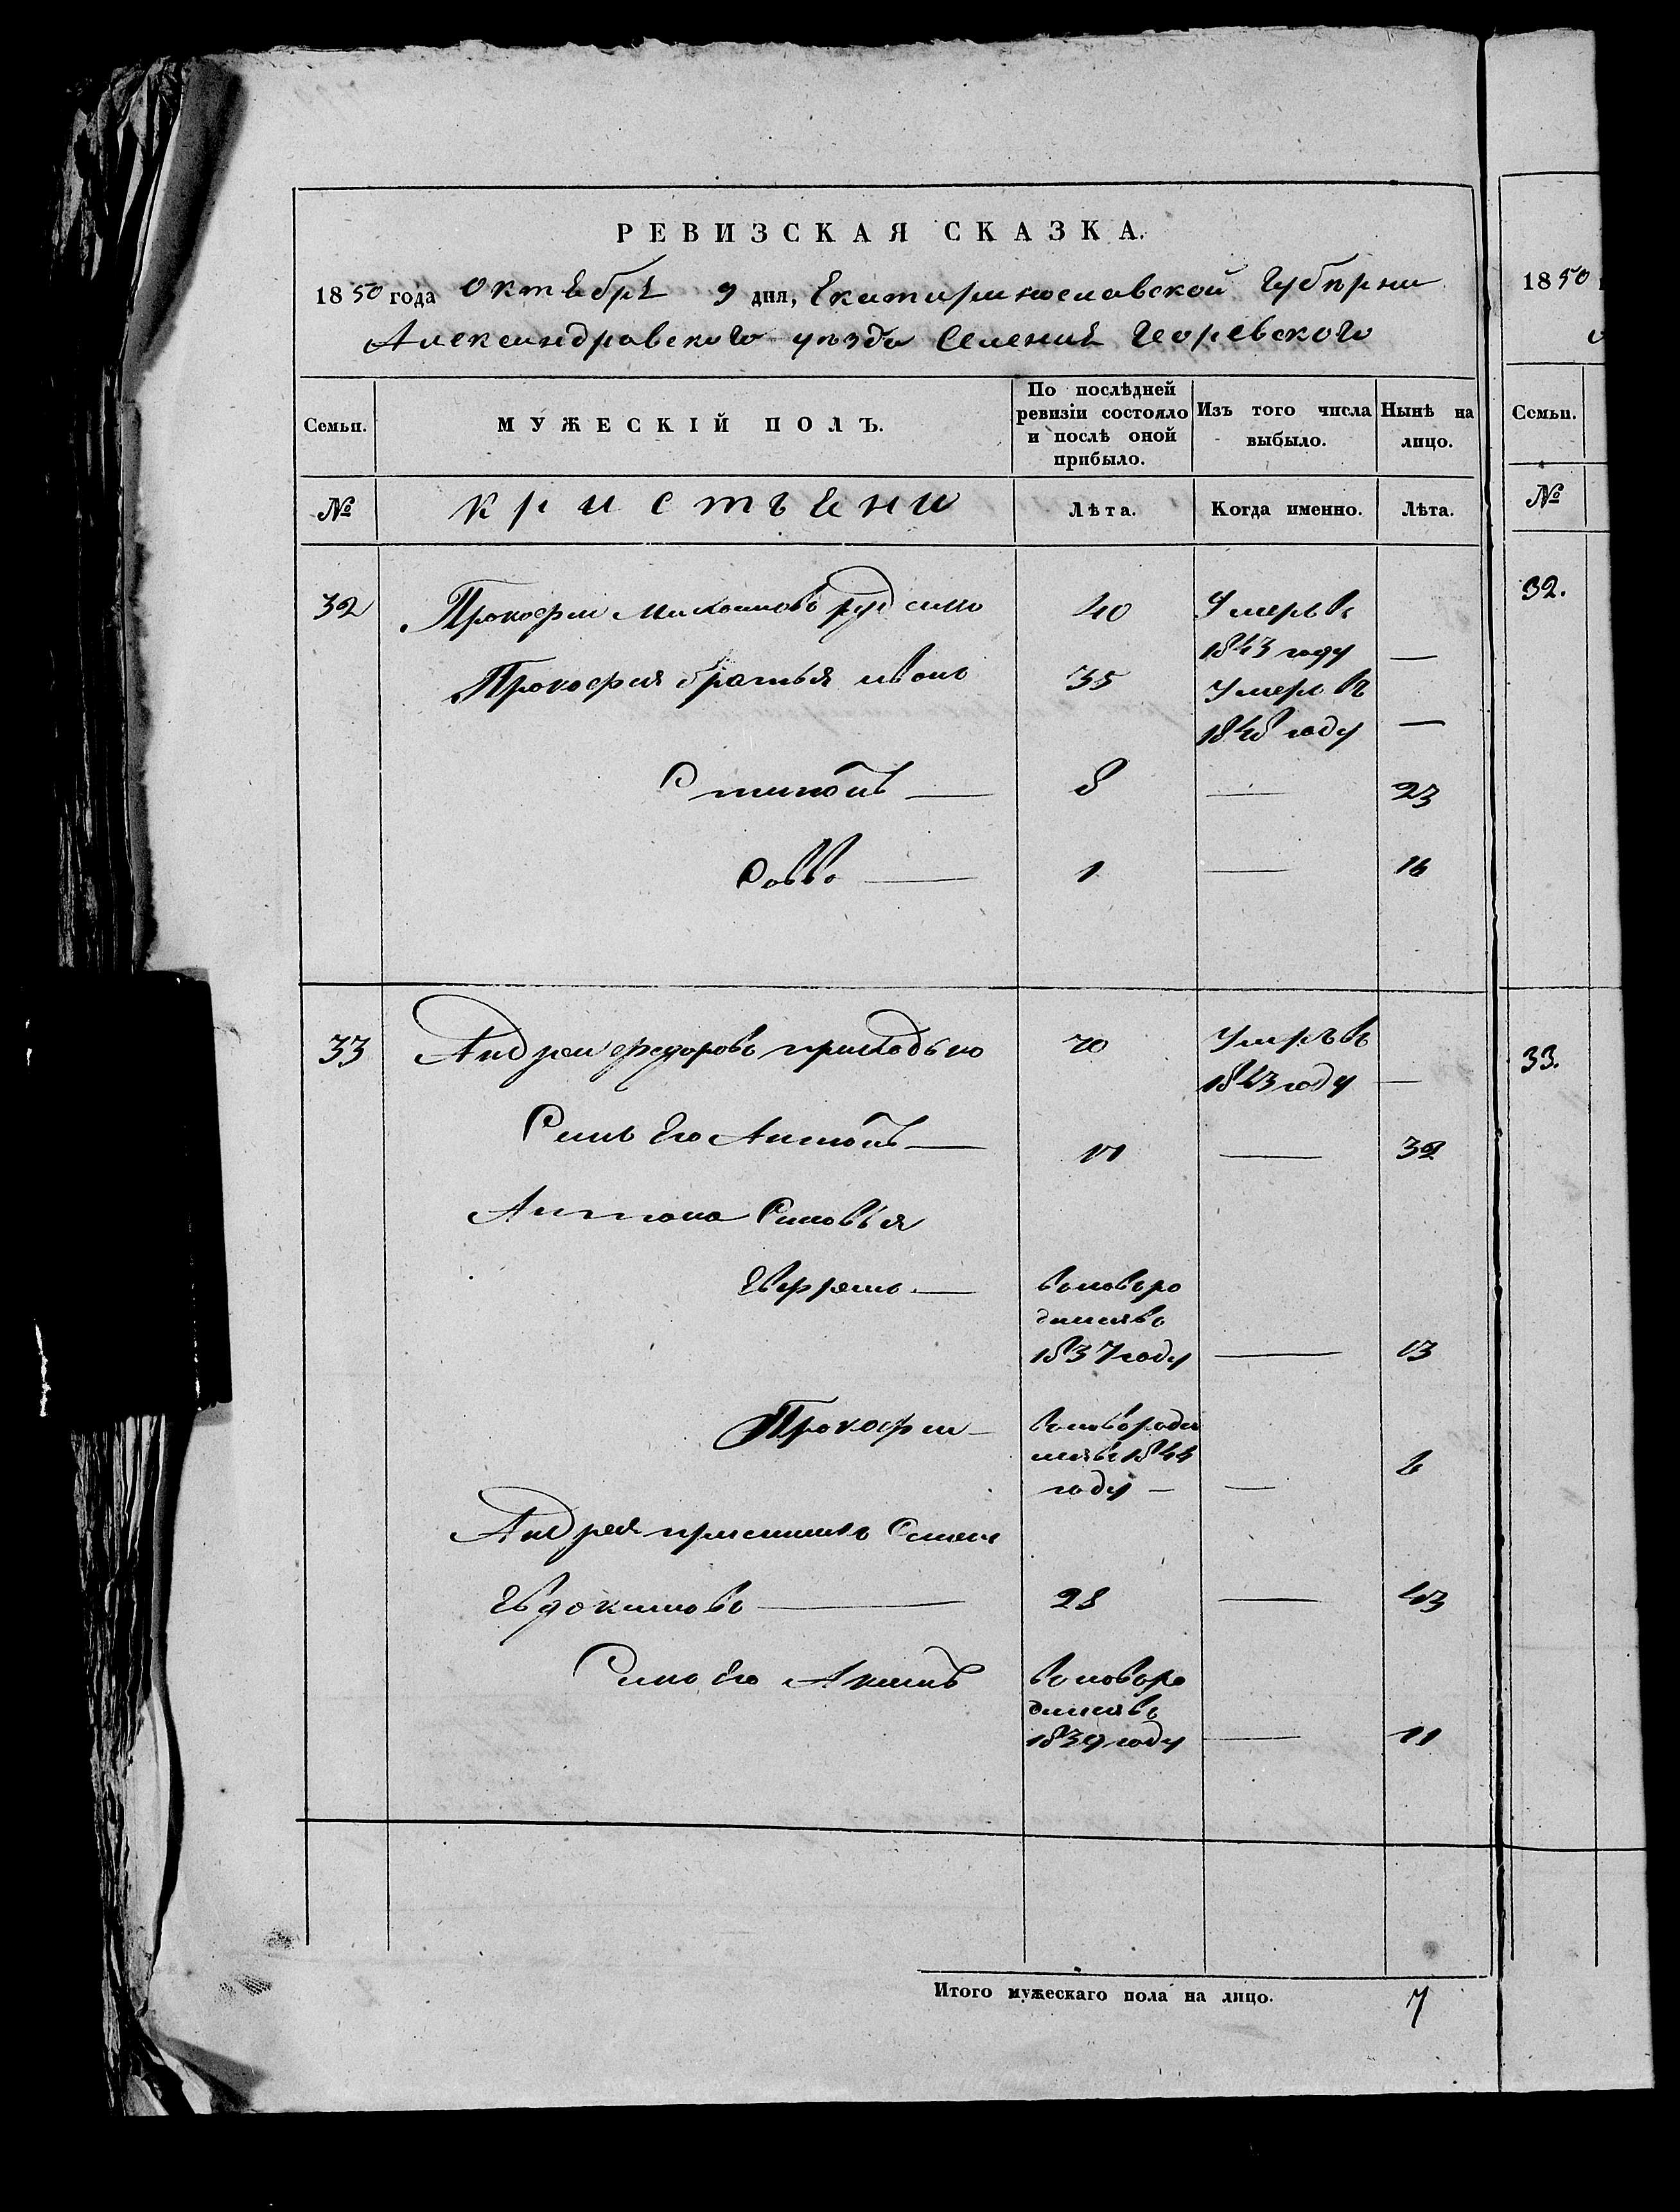 РЕВИЗСКАЯ СКАЗКА.
1850 года Октебрѣ 9 дня, Екатириносл­авской Губѣрни
Александравского уѣзда Селениѣ Георевского
Семьи. МУЖЕСКІЙ ПОЛЪ. По послѣдней ревизіи состояло и послѣ оной прибыло. Изъ того числа выбыло. Нынѣ на лицо.
№ кристъени Лѣта. Когда именно. Лѣта.
32 Прокофи руденко 40 Умеръ въ
1843 году —
Прокофия братья ивонъ 35 Умеръ въ
1848 году —
Стипонъ — 8 — 23
Савва — 1 — 16
33 Андреи Федоровъ приходько 70 Умеръ въ
1843 году —
Синъ Его Антонъ — 17 — 32
Антона Синовья
Ефремъ — вновъро
динъ въ
1837 году — 13
Прокофи — вновъроди
въ 1844
году — — 6
Андрея приемишъ
Евдокимовъ — 28 — 43
Синъ Его Акимъ вновъро
динъ въ
1839 году — 11
Итого мужескаго пола на лицо. 7
1850
Семьи.
№
32.
33.